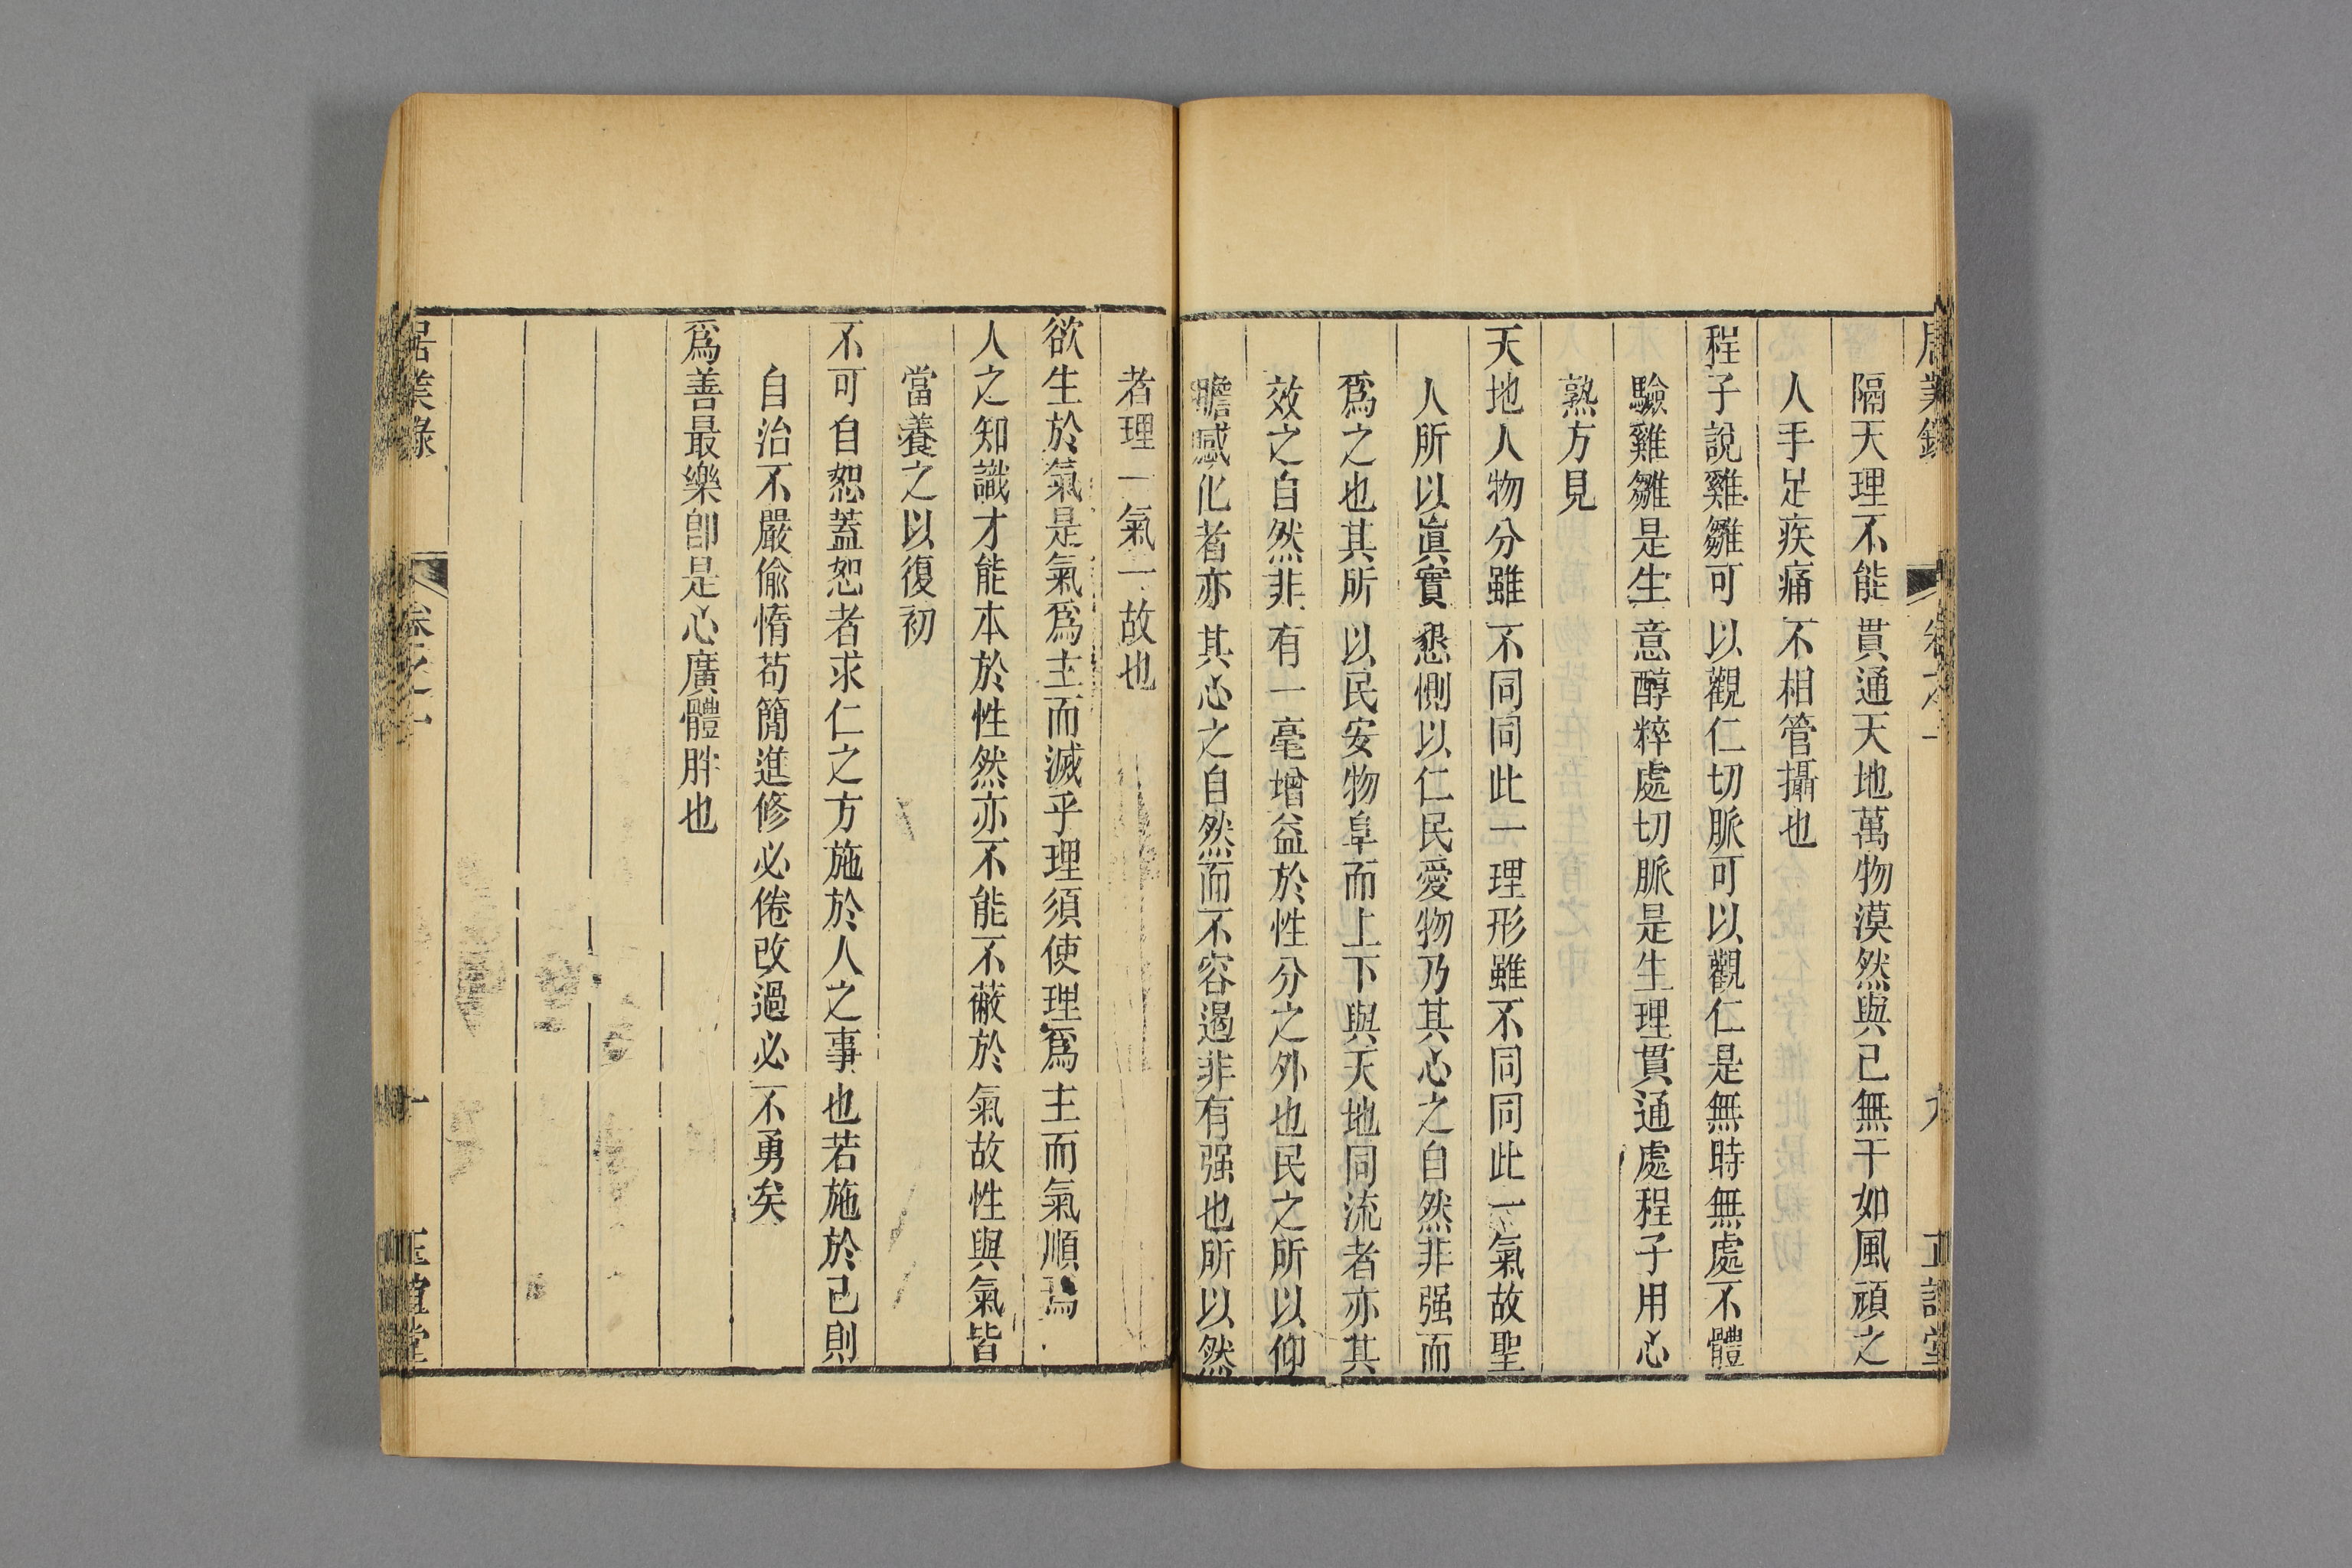 居業錄 卷之一 九 正誼堂
隔天理不能貫通天地萬物漠然與己無干如風頑之
人手足疾痛不相管攝也
程子說雞雛可以觀仁切脈可以觀仁是無時無處不體
驗雞雛是生意醇粹處切脈是生理貫通處程子用心
熟方見
天地人物分雖不同同此一理形雖不同同此一氣故聖
人所以眞實懇惻以仁民愛物乃其心之自然非强而
爲之也其所以民安物阜而上下與天地同流者亦其
效之自然非有一毫增益於性分之外也民之所以仰
瞻感化者亦其心之自然而不容遏非有强也所以然
者理一氣一故也
欲生於氣是氣爲主而滅乎理須使理爲主而氣順焉
人之知識才能本於性然亦不能不蔽於氣故性與氣皆
當養之以復初
不可自恕蓋恕者求仁之方施於人之事也若施於己則
自治不嚴偷惰苟簡進修必倦改過必不勇矣
爲善最樂卽是心廣體胖也
居業錄 卷之一 十 正誼堂